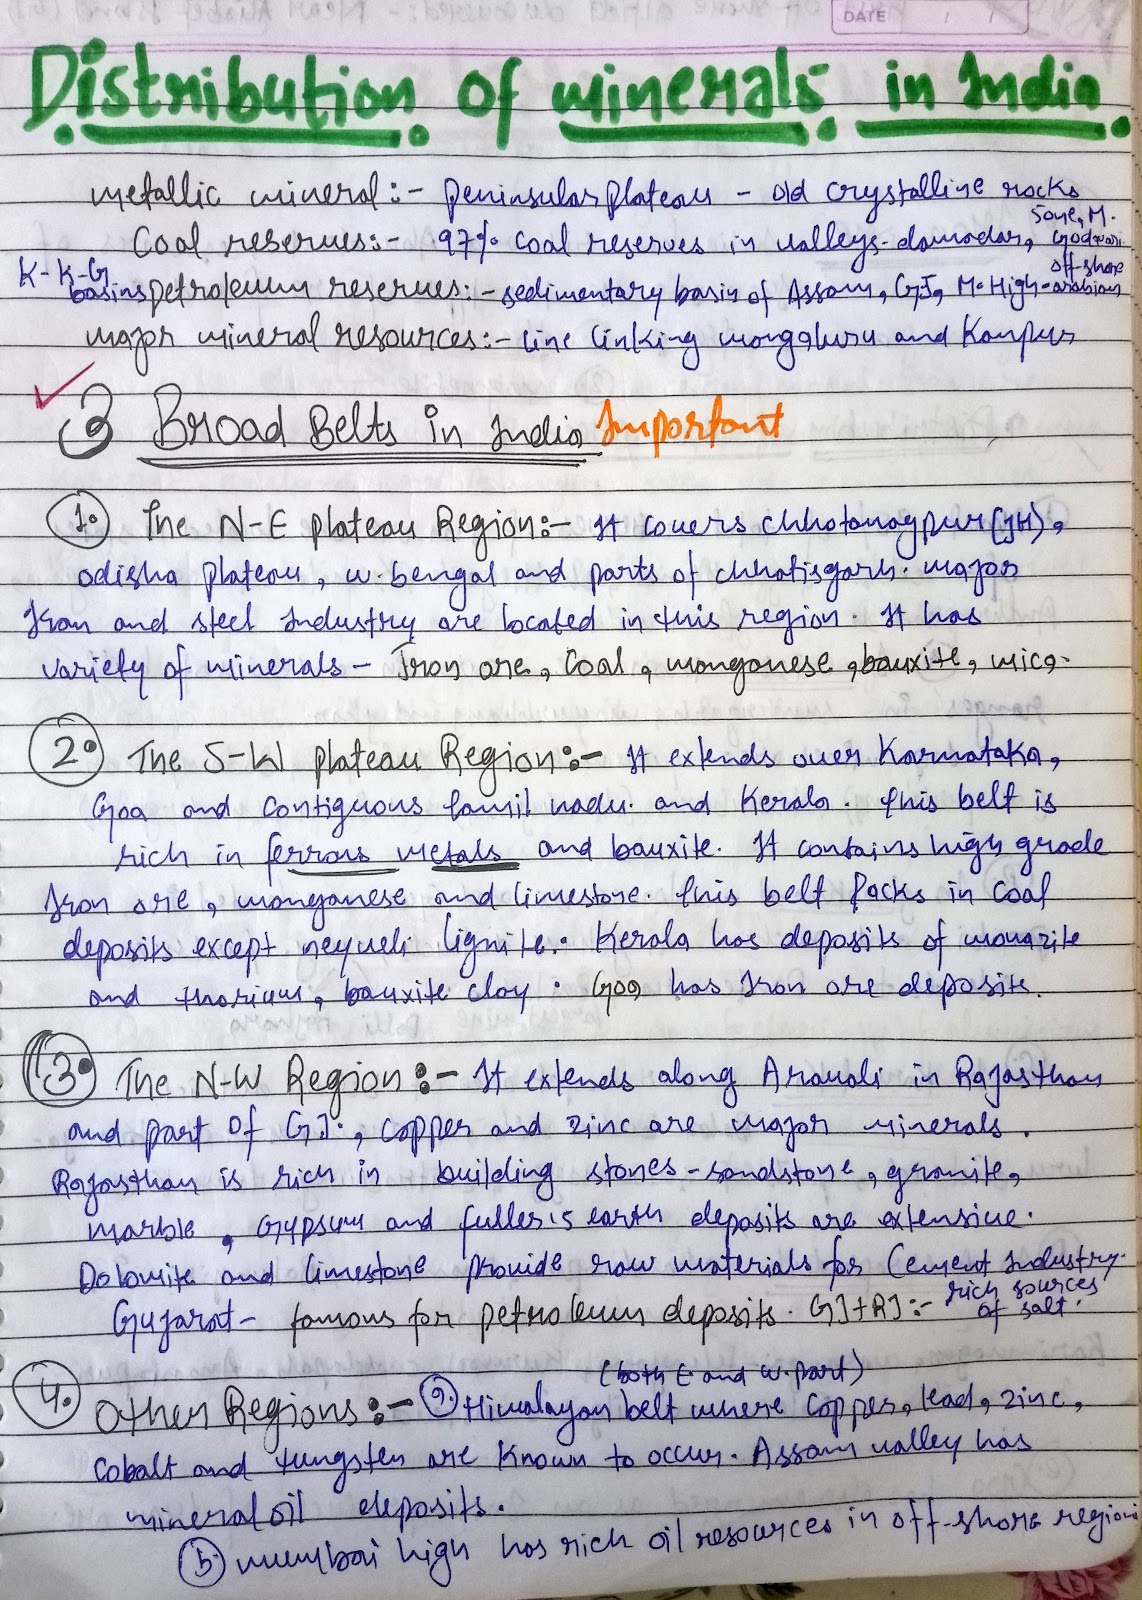 DATE
Distribution of minerals in India
metallic mineral:- peninsular plateau - old crystalline rocks
Coal reserves:- 97% coal reserves in valleys-damodar, Sone, M. Godvari
K-K-G basins petroleum reserves:- sedimentary basin of Assam, GJ, M.High - off-shore arabian
major mineral resources:- line linking mangaluru and Kanpur
3 Broad Belts in India Important
1. The N-E plateau Region:- It covers chhotanagpur(JH),
odisha plateau, w.bengal and parts of chhatisgarh. major
Iron and steel Industry are located in this region. It has
variety of minerals - Iron ore, Coal, manganese, bauxite, mica.
2. The S-W plateau Region:- It extends over Karnataka,
Goa and contiguous tamil nadu. and Kerala. this belt is
rich in ferrous metals and bauxite. It contains high grade
Iron ore, manganese and limestone. this belt Packs in coal
deposits except neyveli lignite. Kerala has deposits of monazite
and thorium, bauxite clay. Goa has Iron ore deposits.
3. The N-W Region:- It extends along Aravali in Rajasthan
and part of GJ., copper and zinc are major minerals.
Rajasthan is rich in building stones - sandstone, granite,
marble, Gypsum and fuller's earth deposits are extensive.
Dolomite and limestone provide raw materials for Cement Industry.
Gujarat- famous for petroleum deposits. GJ+RJ:- rich sources of salt.
4. Other Regions:- (a) Himalayan belt (both E and W. part) where copper, lead, zinc,
cobalt and tungsten are known to occur. Assam valley has
mineral oil deposits.
(b) mumbai high has rich oil resources in off-shore regions